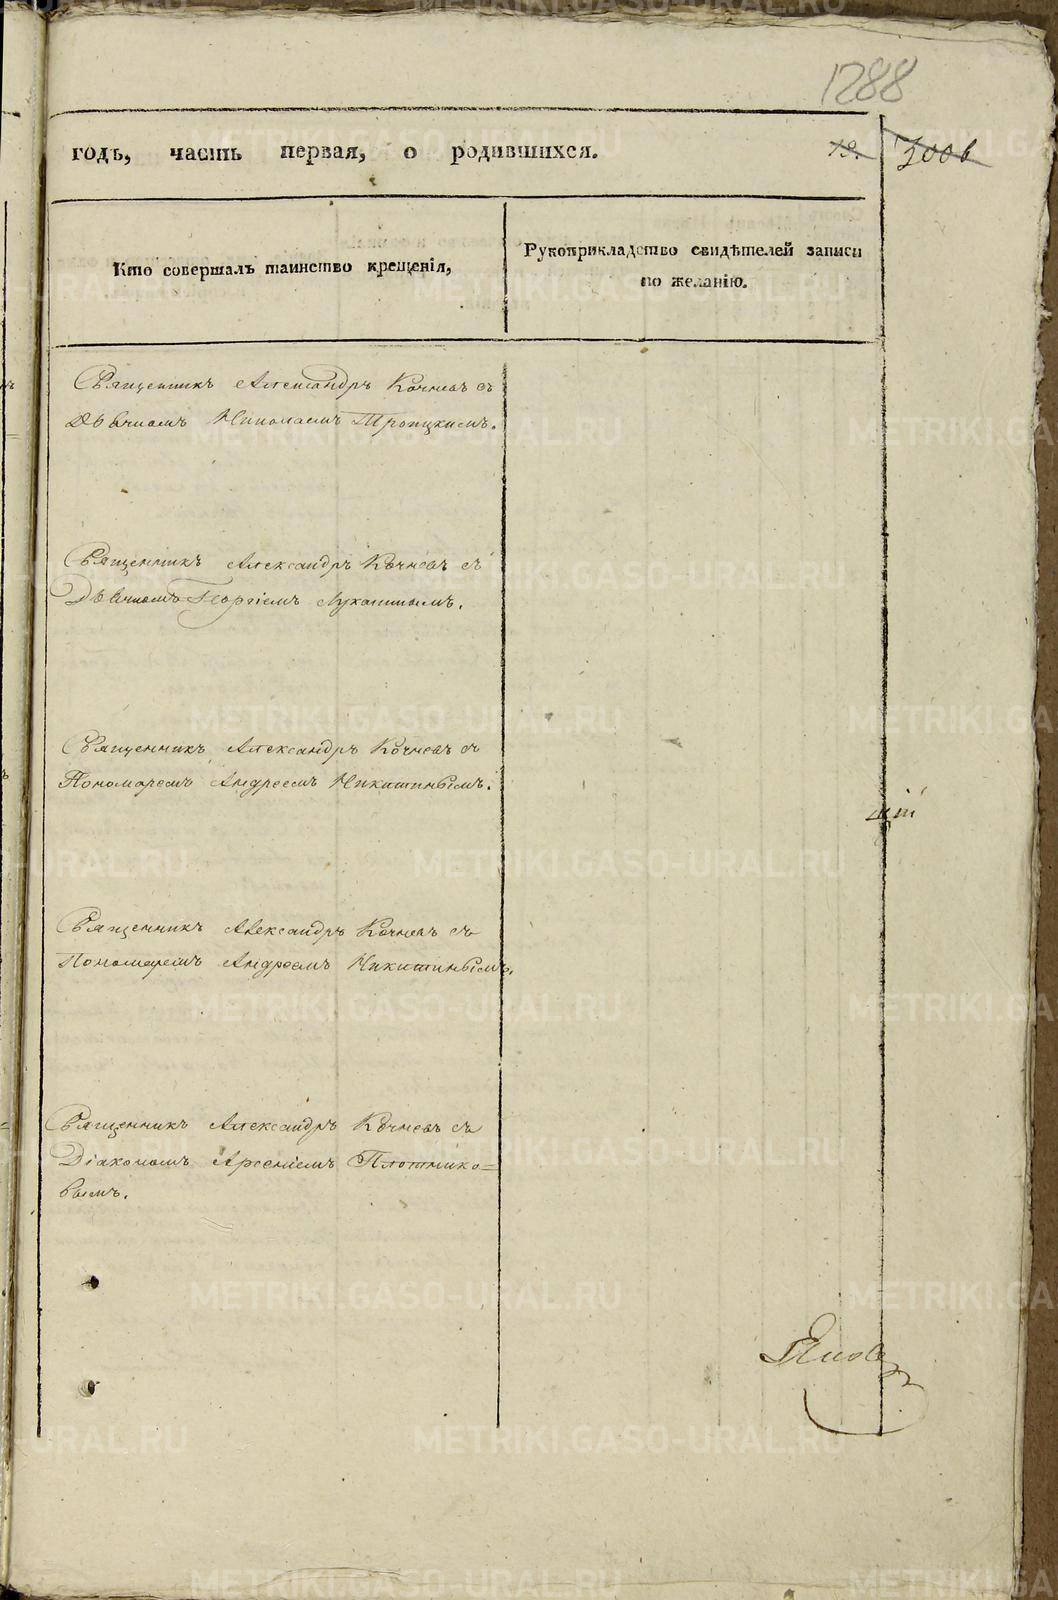 1288
годъ, часть первая, о родившихся.
19.
Кто совершалъ таинство крещенія,
Рукоприкладство свидѣтелей записи
по желанію.
Священникъ Александръ Кочневъ съ
Дьячкомъ Николаемъ Троицкимъ.
Священникъ Александръ Кочневъ съ
Дьячкомъ Георгіемъ Лукашнымъ.
Священникъ Александръ Кочневъ съ
Пономаремъ Андреемъ Никитинымъ.
щій
Священникъ Александръ Кочневъ съ
Пономаремъ Андреемъ Никитинымъ.
Священникъ Александръ Кочневъ съ
Діакономъ Арсеніемъ Плотнико=
вымъ.
METRIKI.GASO-URAL.RU